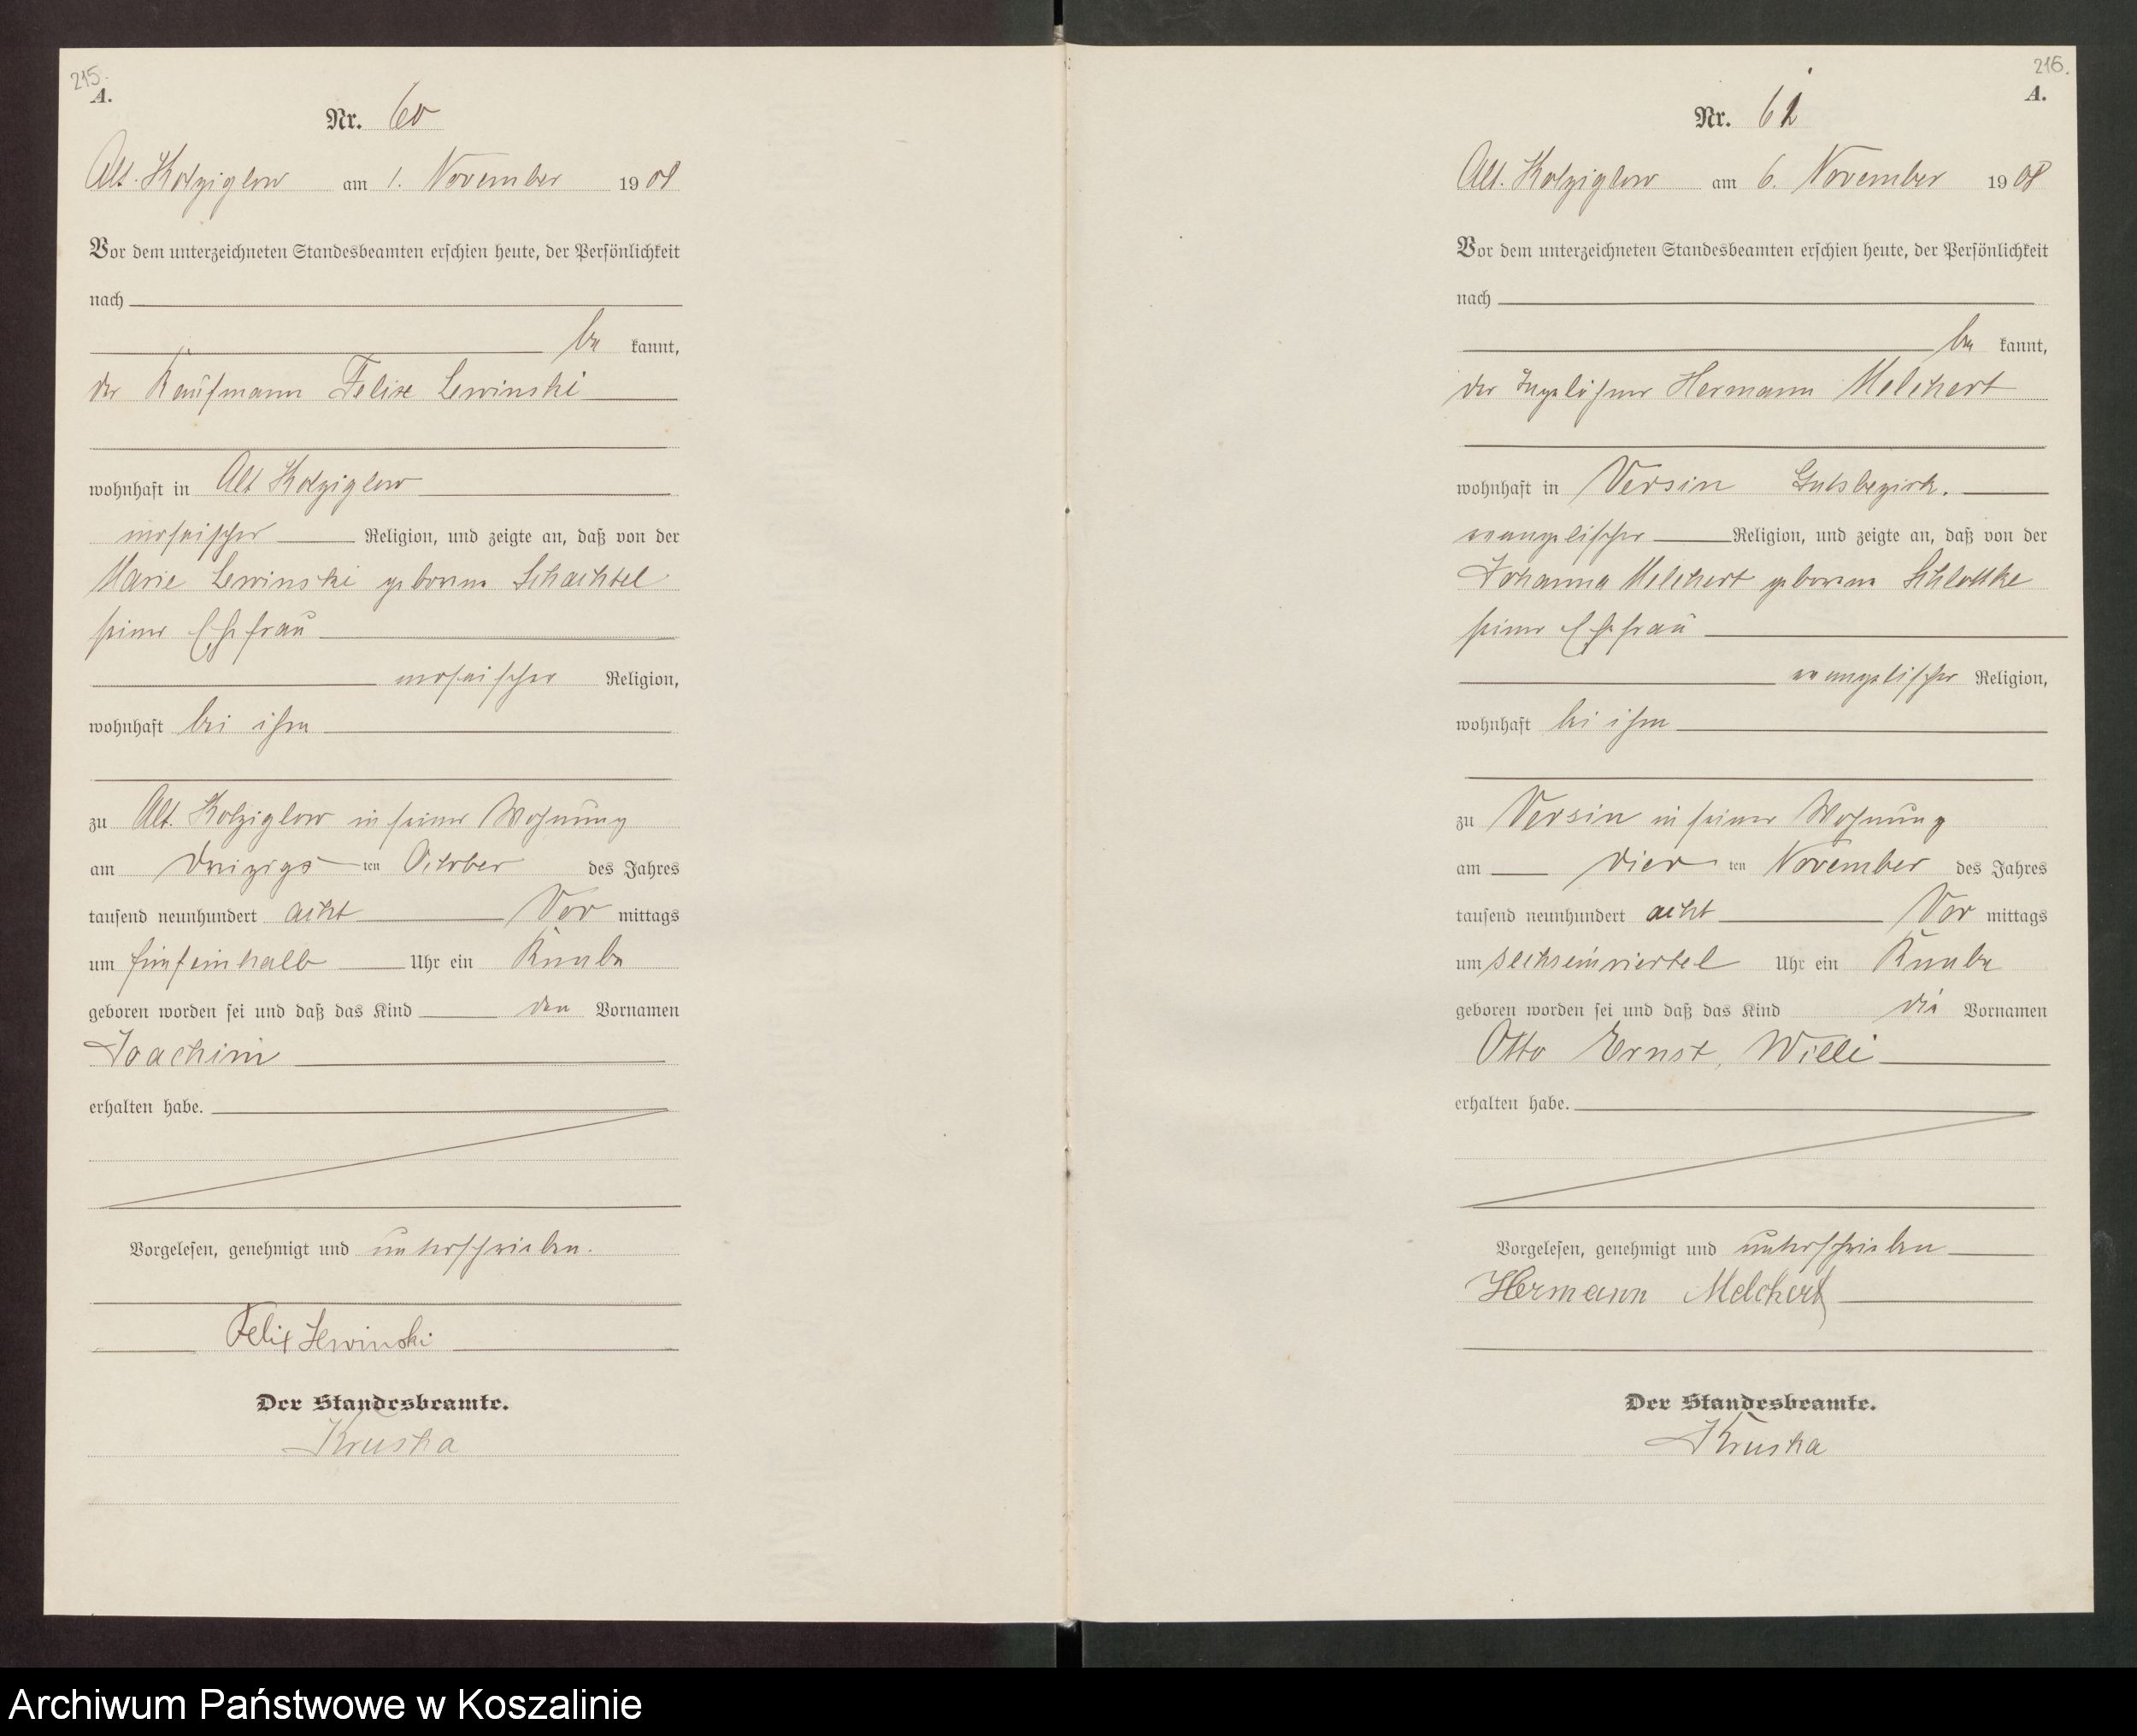 215.
A.
Nr. 60
Alt. Kolziglow am 1. November 1908
Vor dem unterzeichneten Standesbeamten erschien heute, der Persönlichkeit
nach
be kannt,
der Kaufmann Felix Lewinski
wohnhaft in Alt Kolziglow
mosaischer Religion, und zeigte an, daß von der
Marie Lewinski geborene Schachtel
seiner Ehefrau
mosaischer Religion,
wohnhaft bei ihm
zu Alt. Kolziglow in seiner Wohnung
am dreizigs ten October des Jahres
tausend neunhundert acht Vor mittags
um fünfeinhalb Uhr ein Knabe
geboren worden sei und daß das Kind den Vornamen
Joachim
erhalten habe.
Vorgelesen, genehmigt und unterschrieben.
Felix Lewinski
Der Standesbeamte.
Kruska
216.
A.
Nr. 61
Alt. Kolziglow am 6. November 1908
Vor dem unterzeichneten Standesbeamten erschien heute, der Persönlichkeit
nach
be kannt,
der Tagelöhner Hermann Melchert
wohnhaft in Versin Gutsbezirk.
evangelischer Religion, und zeigte an, daß von der
Johanna Melchert geborene Schlottke
seiner Ehefrau
evangelischer Religion,
wohnhaft bei ihm
zu Versin in seiner Wohnung
am vier ten November des Jahres
tausend neunhundert acht Vor mittags
um sechseinviertel Uhr ein Knabe
geboren worden sei und daß das Kind die Vornamen
Otto Ernst, Willi
erhalten habe.
Vorgelesen, genehmigt und unterschrieben
Hermann Melchert
Der Standesbeamte.
Kruska
Archiwum Państwowe w Koszalinie